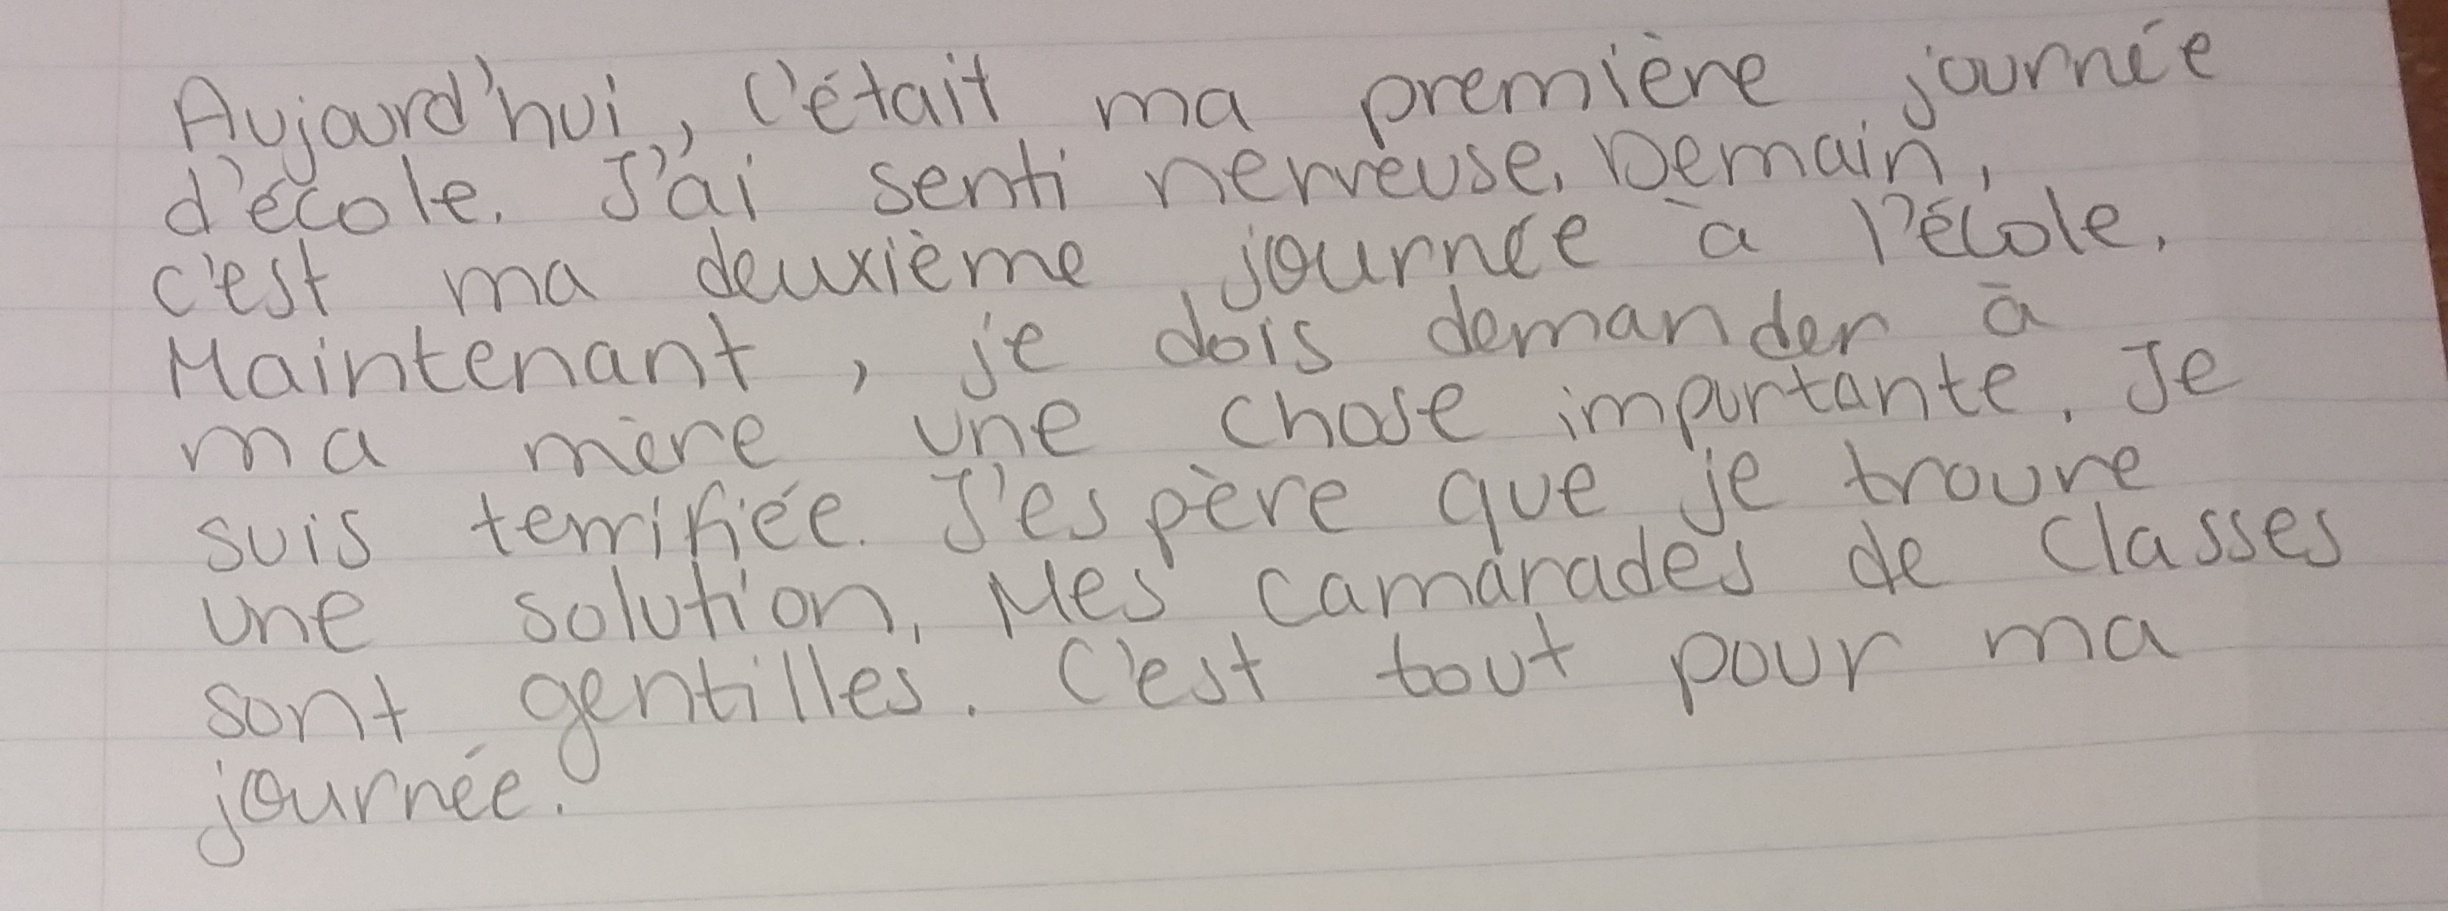 Aujourd'hui, c'était ma première journée
d'école. J'ai senti nerveuse. Demain,
c'est ma deuxième journée à l'école.
Maintenant, je dois demander à
ma mère une chose importante. Je
suis terrifiée. J'espère que je trouve
une solution. Mes camarades de classes
sont gentilles. C'est tout pour ma
journée.